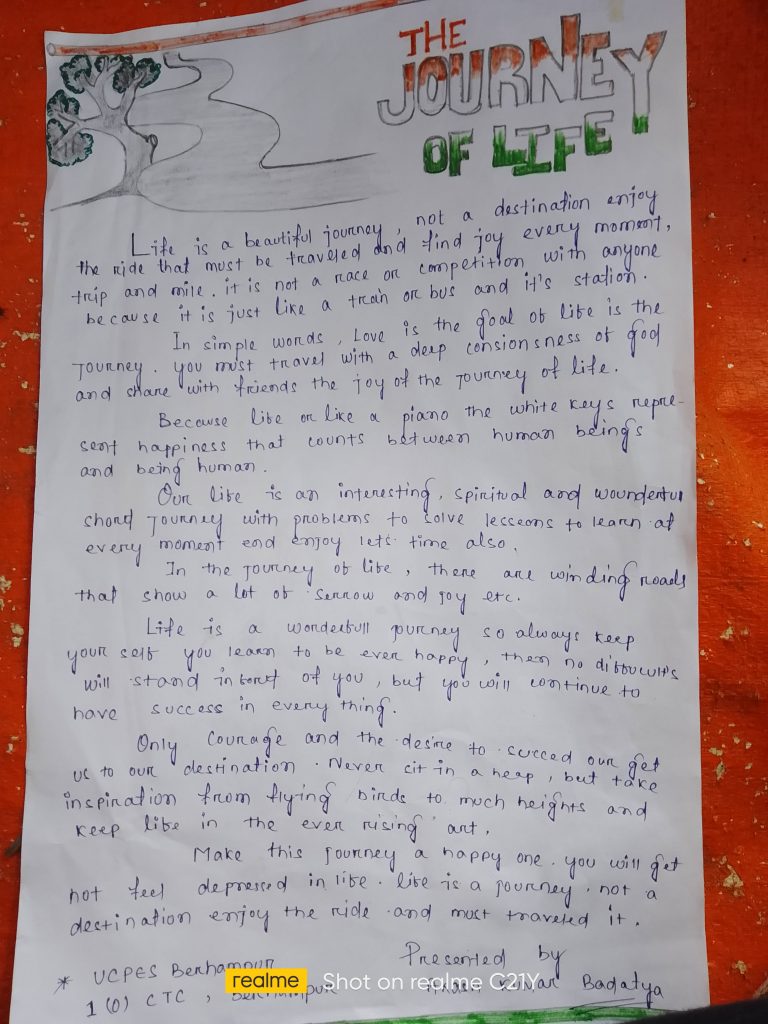 THE
JOURNEY
OF LIFE
Life is a beautiful journey, not a destination enjoy
the ride that must be traveled and find joy every moment,
trip and mile. it is not a race or competition with anyone
because it is just like a train or bus and it's station.
In simple words, Love is the goal of life is the
Journey. you must travel with a deep consionsness of god
and share with friends the joy of the Journey of life.
Because life or like a piano the white keys repre-
sent happiness that counts between human beings
and being human.
Our life is an interesting, spiritual and wounderful
short Journey with problems to solve lesseons to learn at
every moment end enjoy lets time also.
In the Journey of life, there are winding roads
that show a lot of serrow and joy etc.
Life is a wonderfull journey so always keep
your self you learn to be ever happy, then no difficults
will stand infront of you, but you will continue to
have success in every thing.
Only Courage and the desire to succed our get
us to our destination. Never sit in a heap, but take
inspiration from flying birds to much heights and
keep life in the ever rising art.
Make this Journey a happy one. you will get
not feel depressed in life. life is a journey, not a
destination enjoy the ride and must traveled it.
Presented by
* UCPES Berhampur
Kumar Badatya
1 (O) CTC, Berhampur
realme Shot on realme C21Y